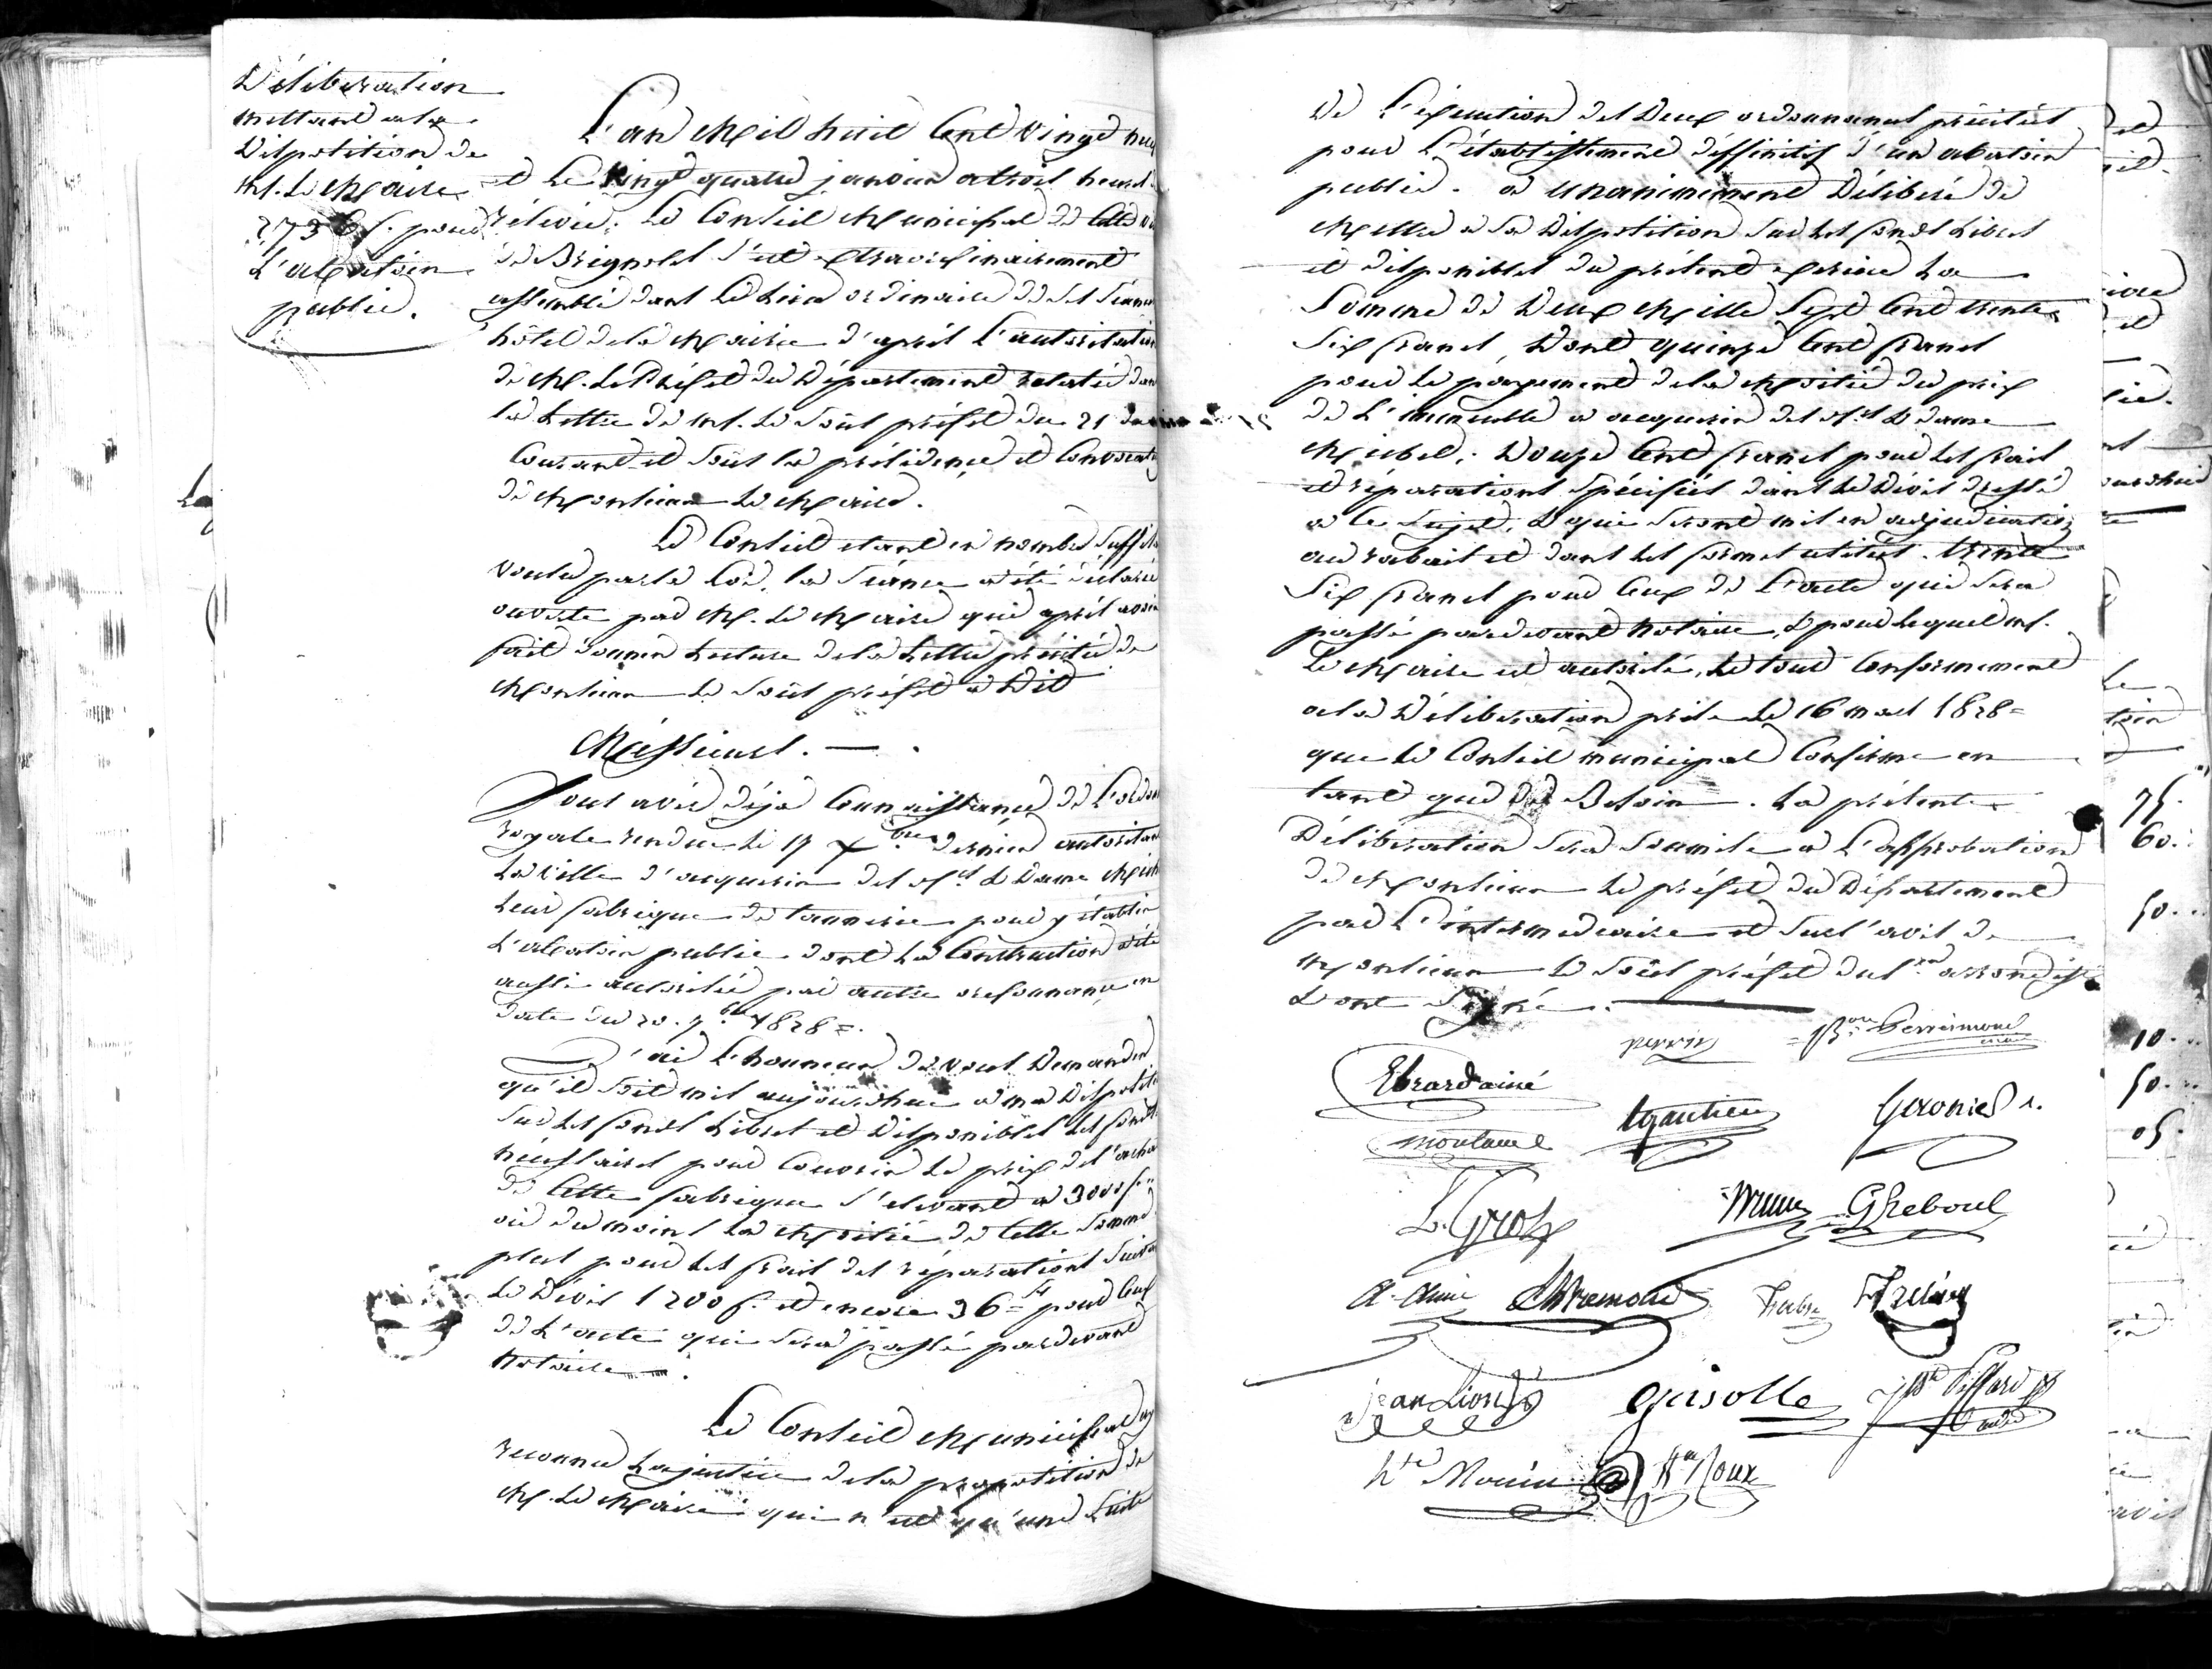 Déliberation
mettant a la
Disposition de
M. Le Maire
2736 f. pour
L'abatoir
public.
L'an Mil huit Cent vingt neuf
et Le vingt quatre janvier a trois heures
rélevée; Le Conseil Municipal de Cette
de Brignoles s'est extraordinairement
assemblé dans Le Lieu ordinaire de ses séances
hôtel de la Mairie d'après l'autorisation
de M. Le Préfet du Département relatée dans
la Lettre de M. Le Sous préfet du 21
Courant et sous la présidence et Convocation
de Monsieur Le Maire.
Le Conseil etant en nombre suffis
voulu par la Loi, la séance a été déclarée
ouverte par M. Le Maire qui après avoir
fait donner Lecture de la Lettre précitée de
Monsieur Le Sous préfet a Dit
Messieurs. —
Vous avés déja Connaissance de L'ordon
royale rendue le 17 Xbre dernier autorisant
La Ville d'acquerir des Srs & Dame
Leur fabrique de tannerie pour y établir
L'abatoir public dont La Construction a été
aussi autorisée par autre ordonnance en
date du 20. 7bre 1828 =.
J'ai L'honneur de vous Demander
qu'il soit mis aujourd'hui a ma Disposit
sur les fonds Libres et Disponibles les fonds
nécessaires pour Couvrir Le prix de l'achat
de Cette fabrique s'elevant a 3000 f.
ou du moins La Moitié de Cette somme
plus pour les frais des réparations suivant
Le Dévis 1200 f. et encore 36 = pour Ceux
de L'acte qui sera passé pardevant
Notaire.
Le Conseil Municipal
reconnu La justice de la proposition de
M. Le Maire qui n'est qu'une suite
De L'éxécution des Deux ordonnances précitées
pour L'établissement déffinitif d'un abatoir
public. a unanimement Déliberé de
Mettre a sa Disposition sur les fonds Libres
et disponibles du présent exercice La
Somme de Deux Mille Sept Cent trente
Six francs, Dont quinze Cent francs
pour Le payement de la Moitié du prix
de L'immeuble a acquerir des Srs & dame
; Douze Cent francs pour les frais
et réparations spécifiés dans Le Dévis dressé
a Ce Sujet, & qui seront mis en adjudication
au rabais et dans les formes utiles. trente
Six francs pour Ceux de L'acte qui sera
passé pardevant Notaire, & pour Lequel M.
Le Maire est autorisé, Le tout Conformement
a la Déliberation prise Le 16 mars 1828 =
que Le Conseil municipal Confirme en
tant que de Besoin. La présente
Déliberation sera soumise a L'approbation
de Monsieur Le préfet du Département
par L'intermediaire et sur l'avis de
Monsieur Le Sous préfet du 1er arrondisst
& ont Signé.
perrin
Bon Perrimond
Ebrard ainé
Gautier
Geronier
L. Gros
G Reboul
Jean Lion
gasolle
Jph Piffard
hte Mouin
Roux
75.
60.
50.
10.
50.
05.